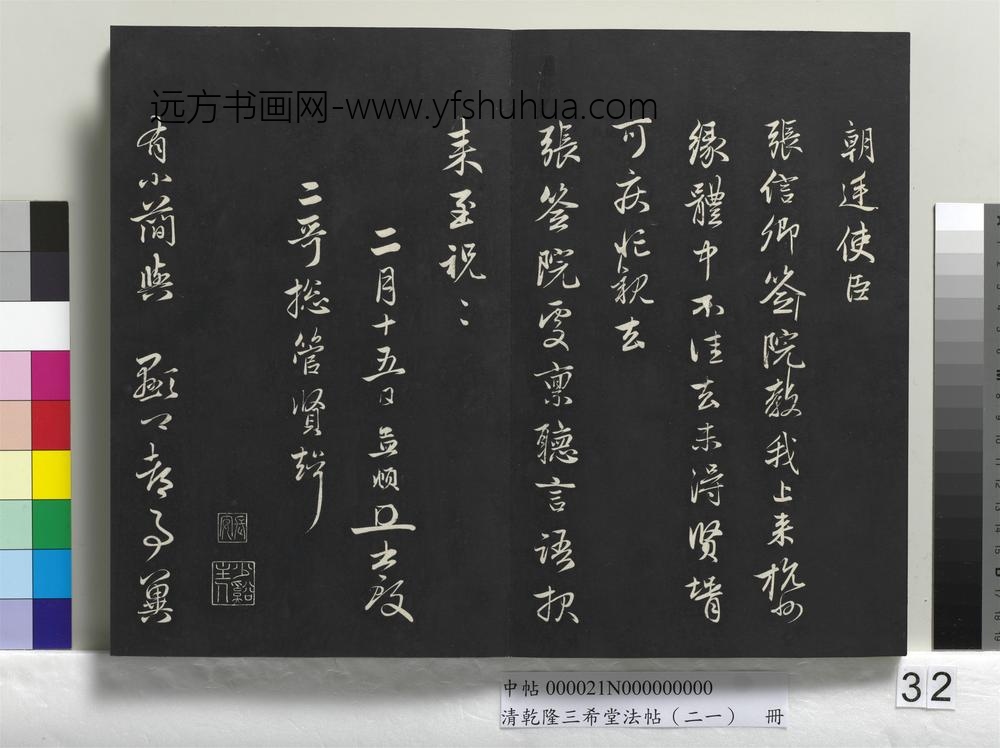 远方书画网-www.yfshuhua.com
朝廷使臣
張信卿簽院教我上来杭州
緣體中不佳去未得賢壻
可疾忙親去
張簽院處稟聽言語報
来至祝〻
二月十五日孟頫
二哥総管賢壻
有小簡與
少谿主人
中帖 000021N000000000
清乾隆三希堂法帖（二一） 冊
32